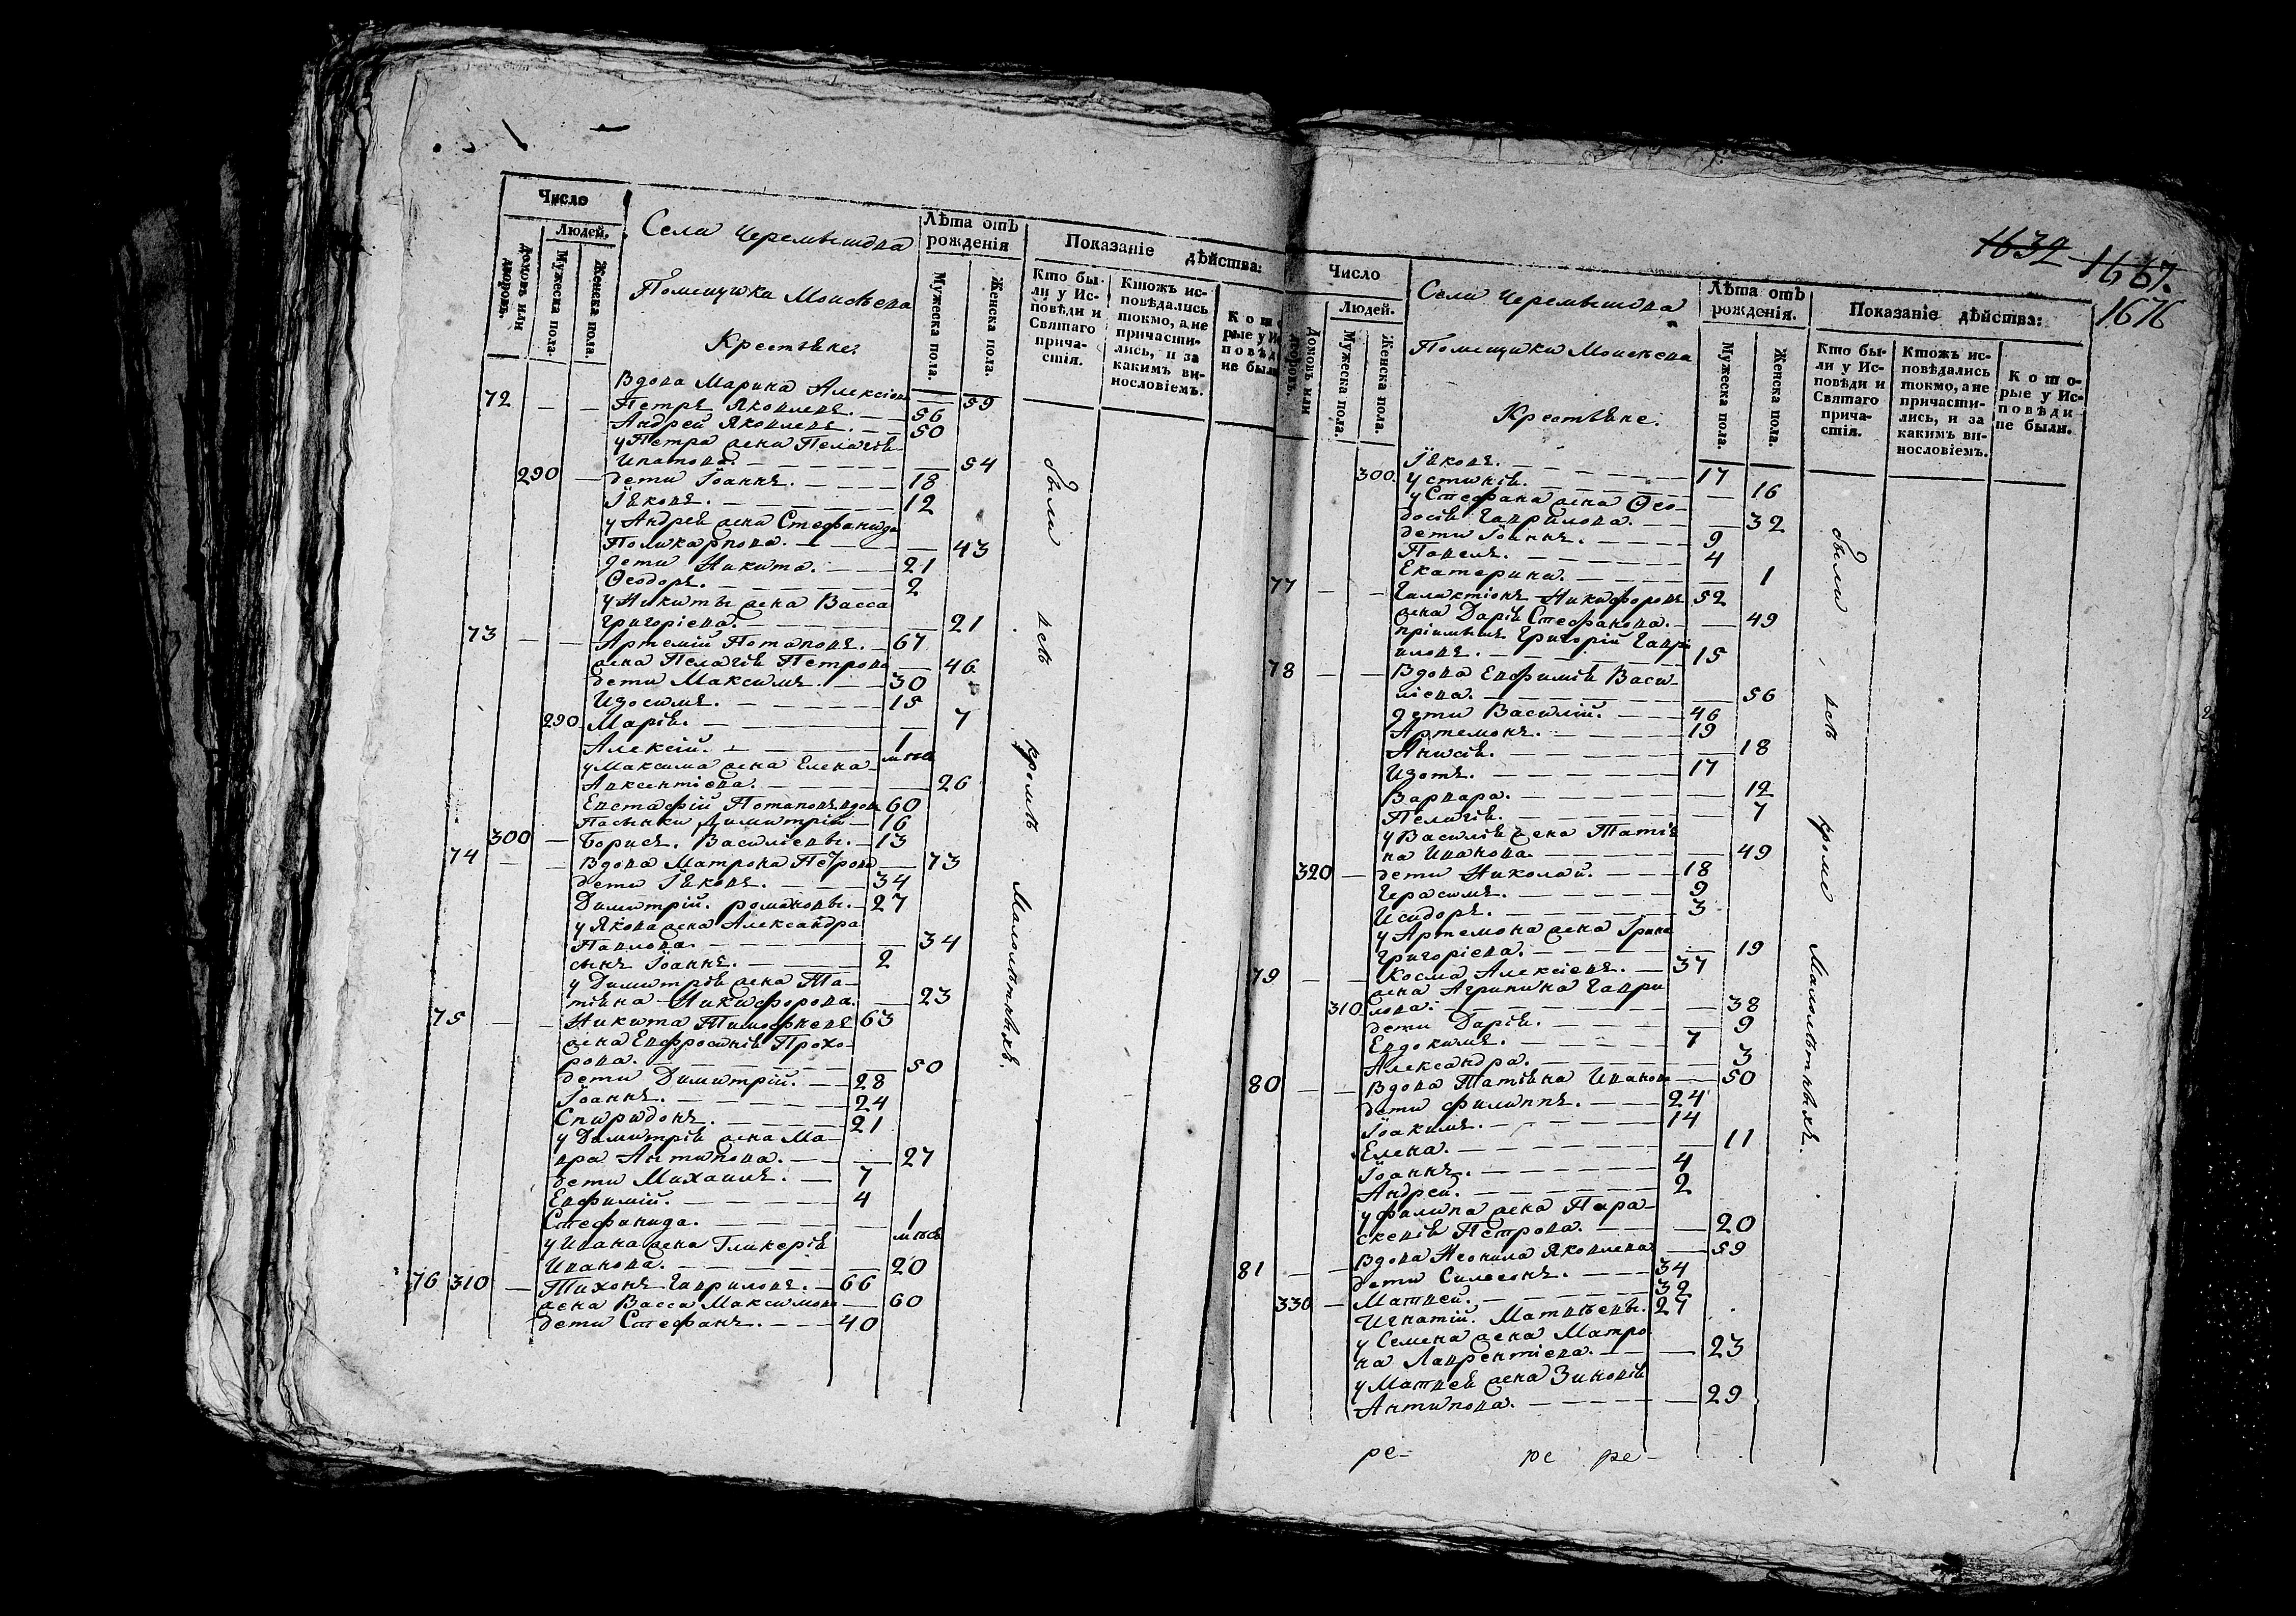 Число
Людей.
Домовъ или дворовъ.
Мужеска пола.
Женска пола.
Села Черемышова
Помещика Моисѣева
Крестьяне.
Лѣта отъ рожденія
Мужеска пола.
Женска пола.
Показаніе дѣйства:
Кто бы-
ли у Ис-
повѣди и
Святаго
прича-
стія.
Ктожъ ис-
повѣдались
токмо, а не
причасти-
лись, и за
какимъ ви-
нословіемъ.
Кото
рые у Ис
повѣд
не были
Вдова Марина Алексіева — 59
72 — — Петръ Яковлевъ. — — 56
Андрей Яковлевъ. — — 50
у Петра жена Пелагія
Ипатова. — — 54
290 — дети Іоаннъ. — — 18
Іяковъ. — — 12
у Андрея жена Стефанида
Поликарпова. — — 43
дети Никита. — — 21
Ѳеодоръ. — — 2
у Никиты жена Васса
Григоріева. — — 21
73 — — Артемій Потаповъ. — 67
жена Пелагія Петрова — 46
дети Максимъ. — — 30
Изосимъ. — — 15
290 Марія. — — 7
Алексій. — — 1
мѣся
у Максима жена Елена
Авксентіева. — — 26
Евстафій Потаповъ вдовъ 60
Пасынки Димитрій — 16
300 — Борисъ. Васильевы. — 13
74 — — Вдова Матрона Петрова — 73
дети Іяковъ. — — 34
Димитрій. Романовы. — 27
у Якова жена Александра
Павлова. — — 34
сынъ Іоаннъ. — — 2
у Димитрія жена Та-
тіяна Никифорова. — 23
75 — — Никита Тимофеевъ 63
жена Евфросинія Прохо-
рова. — — 50
дети Димитрій. — 28
Іоаннъ. — — 24
Спиридонъ. — — 21
у Димитрія жена Ма-
вра Антипова. — — 27
дети Михаилъ. — 7
Евфимій. — — 4
Стефанида. — — 1
мѣся
у Ивана жена Гликерія
Иванова. — — 20
76 310 — Тихонъ Гавриловъ. — 66
жена Васса Максимова — 60
дети Стефанъ. — — 40
были всѣ кромѣ Малолѣтныхъ.
1639 1667.
1676
Число
Людей.
Домовъ или дворовъ.
Мужеска пола.
Женска пола.
Села Черемышова
Помещика Моисѣева
Крестьяне.
Лѣта отъ рожденія.
Мужеска пола.
Женска пола.
Показаніе дѣйства:
Кто бы-
ли у Ис-
повѣди и
Святаго
прича-
стія.
Ктожъ ис-
повѣдались
токмо, а не
причасти-
лись, и за
какимъ ви-
нословіемъ.
Кото-
рые у Ис-
повѣди
не были.
Іяковъ. — — 17
300. Устинія. — — 16
у Стефана жена Ѳео-
досія Гаврилова. — — 32
дети Іоаннъ. — — 9
Павелъ. — — 4
Екатерина. — — 1
77 — — Галактіонъ Никифоровъ 52
жена Дарія Стефанова. — 49
пріимышъ Григорій Гаври
ловъ. — — 15
78 — — Вдова Евфимія Васи-
ліева. — — 56
дети Василій. — — 46
Артемонъ. — — 19
Анисія. — — 18
Изотъ. — — 17
Варвара. — — 12
Пелагія. — — 7
у Василія жена Татія
на Иванова. — — 49
320 — дети Николай. — — 18
Герасимъ. — — 9
Исидоръ. — — 3
у Артемона жена Ірина
Григоріева. — — 19
79 — — Косма Алексіевъ. — 37
жена Агрипина Гаври
310 лова. — — 38
дети Дарія. — — 9
Евдокимъ. — — 7
Александра. — — 3
80 — — Вдова Татіяна Иванова — 50
дети Филиппъ. — — 24
Іоакимъ. — — 14
Елена. — — 11
Іоаннъ. — — 4
Андрей. — — 2
у Филипа жена Пара-
скевія Петрова. — — 20
81 — — Вдова Неонила Яковлева — 59
дети Симеонъ. — — 34
330 — Матвей. — — 32
Игнатій. Матвѣевы. 27
у Семена жена Матро
на Лаврентіева. — — 23
у Матвея жена Зиновія
Антипова. — — 29
были всѣ кромѣ Малолѣтныхъ.
ре- ре ре-